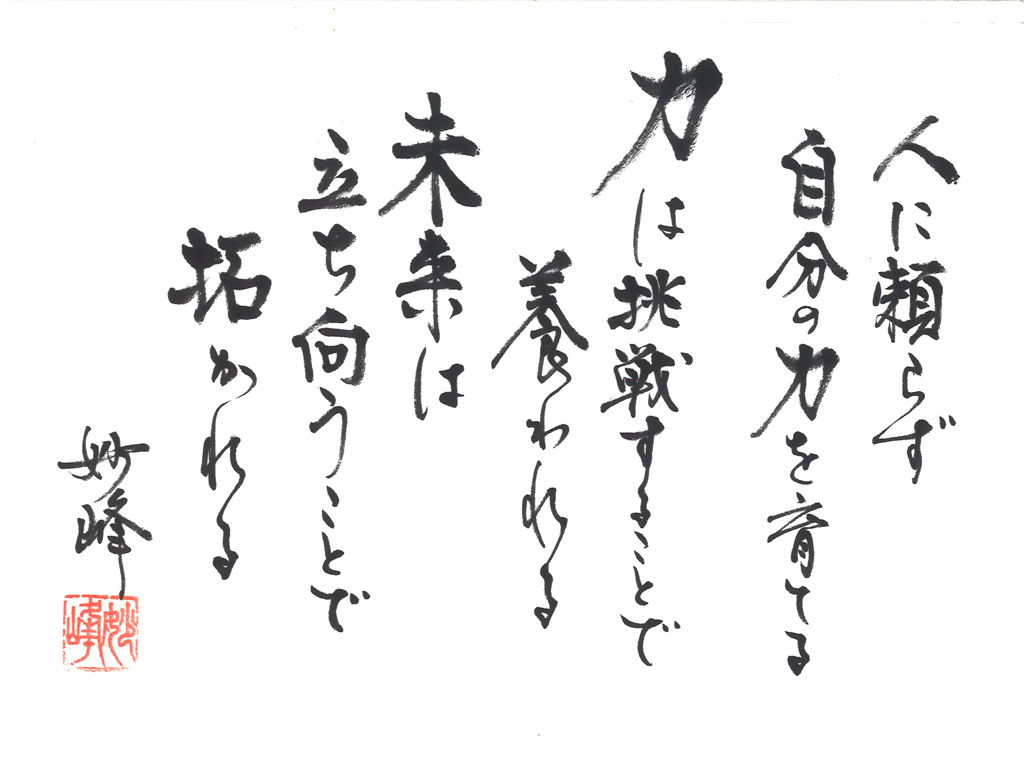 人に頼らず
自分の力を育てる
力は挑戦することで
養われる
未来は
立ち向うことで
拓かれる
妙峰
妙峰